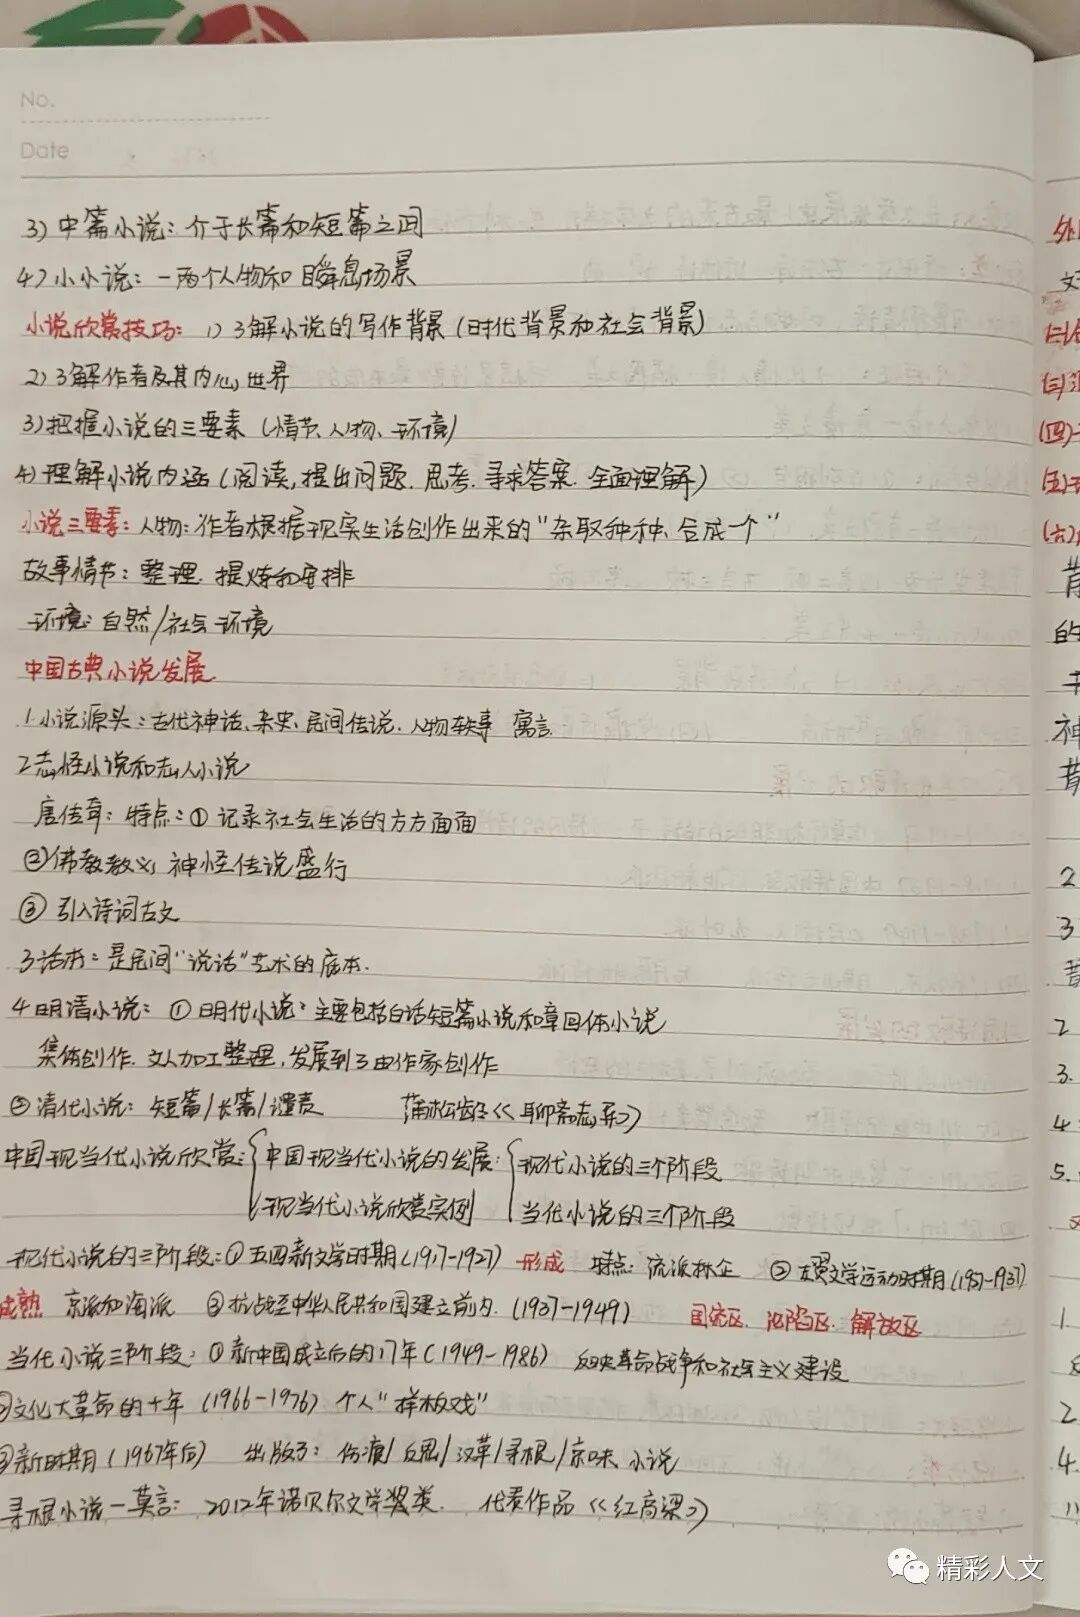 No.
Date
3) 中篇小说：介于长篇和短篇之间
4) 小小说：一两个人物和瞬息场景
小说欣赏技巧：1) 了解小说的写作背景（时代背景和社会背景）
2) 了解作者及其内心世界
3) 把握小说的三要素（情节、人物、环境）
4) 理解小说内涵（阅读，提出问题．思考．寻求答案．全面理解）
小说三要素：人物：作者根据现实生活创作出来的“杂取种种、合成一个”
故事情节：整理．提炼和安排
环境：自然/社会环境
中国古典小说发展．
1．小说源头：古代神话、杂史、民间传说．人物轶事 寓言．
2 志怪小说和志人小说
唐传奇：特点：① 记录社会生活的方方面面
② 佛教教义，神怪传说盛行
③ 引入诗词古文
3 话本：是民间“说话”艺术的底本．
4 明清小说：① 明代小说：主要包括白话短篇小说和章回体小说
集体创作．文人加工整理，发展到了由作家创作
② 清代小说：短篇/长篇/谴责 蒲松龄《聊斋志异》
中国现当代小说欣赏：{ 中国现当代小说的发展：{ 现代小说的三个阶段
现当代小说欣赏实例 当代小说的三个阶段
现代小说的三阶段：① 五四新文学时期（1917-1927） 形成 特点：流派林立 ② 左翼文学运动时期（1927-1937）
成熟 京派和海派 ③ 抗战至中华人民共和国建立前内．（1937-1949） 国统区．沦陷区．解放区
当代小说三阶段：① 新中国成立后的17年（1949-1986） 反映革命战争和社会主义建设
②文化大革命的十年（1966-1976）个人“样板戏”
③新时期（1967年后） 出版了：伤痕/反思/改革/寻根/京味 小说
寻根小说—莫言：2012年诺贝尔文学奖类． 代表作品《红高粱》
精彩人文